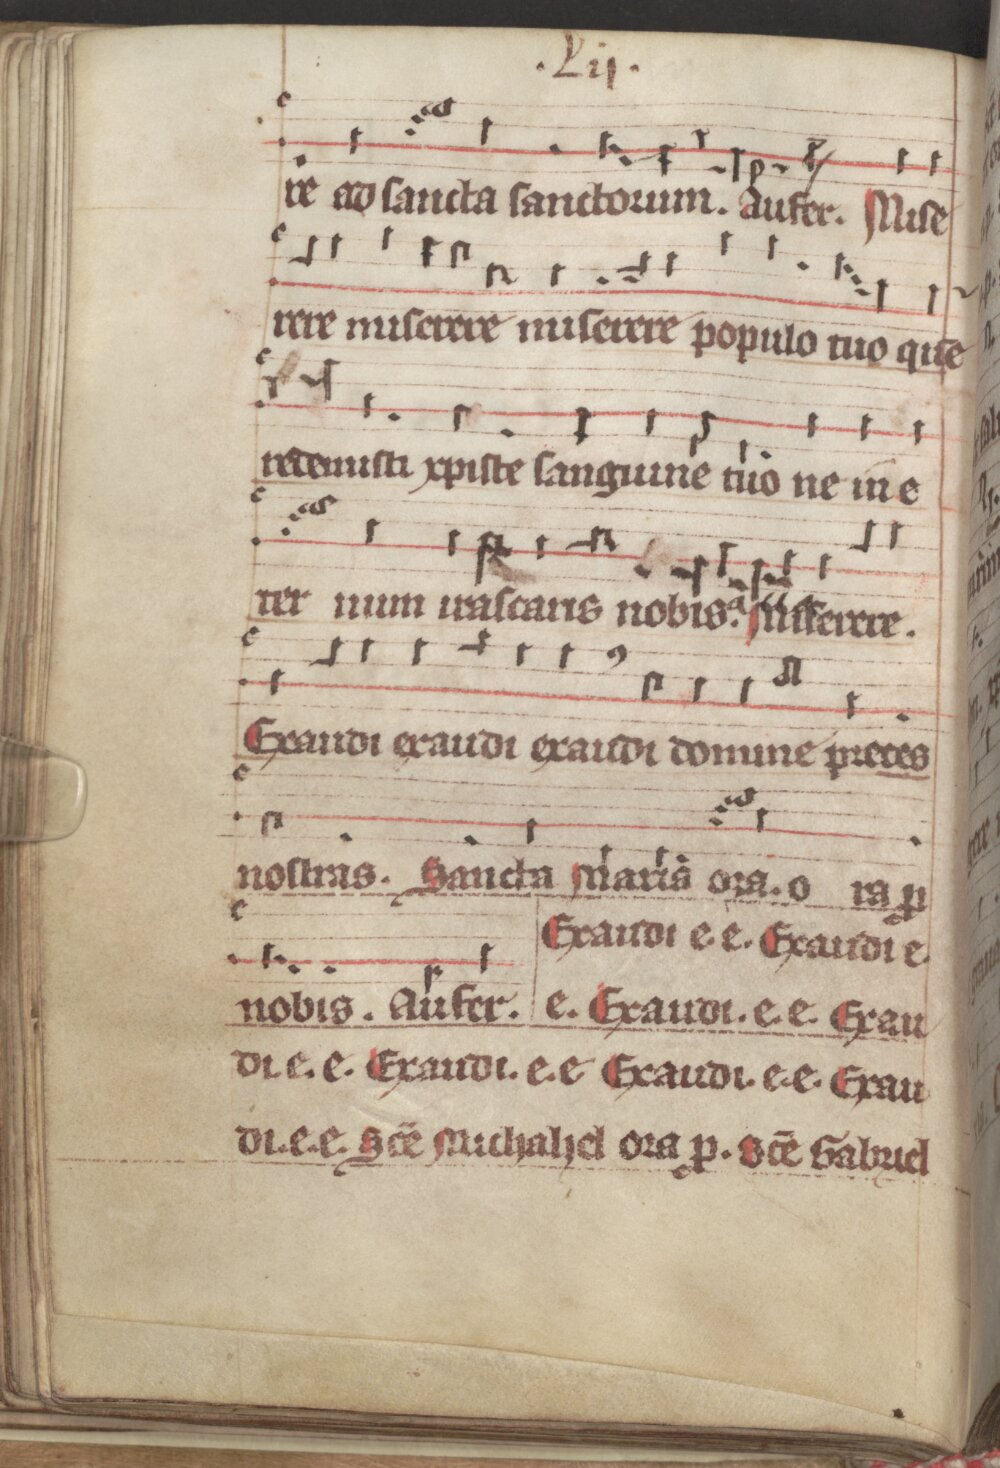 .Lij.
re ad sancta sanctorum. Aufer. Mise
rere miserere miserere populo tuo que
redemisti xpiste sanguine tuo ne in e
ter num irascaris nobis. Miserere.
Exaudi exaudi exaudi domine preces
nostras. Sancta Maria ora. o ra p
Exaudi e. e. Exaudi e.
nobis. Aufer. e. Exaudi. e. e. Exau
di. e. e. Exaudi. e. e Exaudi. e. e. Exau
di. e. e. Scē Michahel ora p. Scē Gabriel